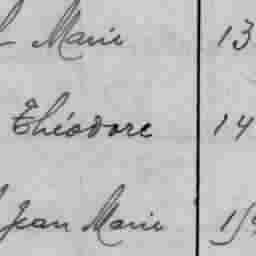 Marie 13
Théodore 14
Jean Marie